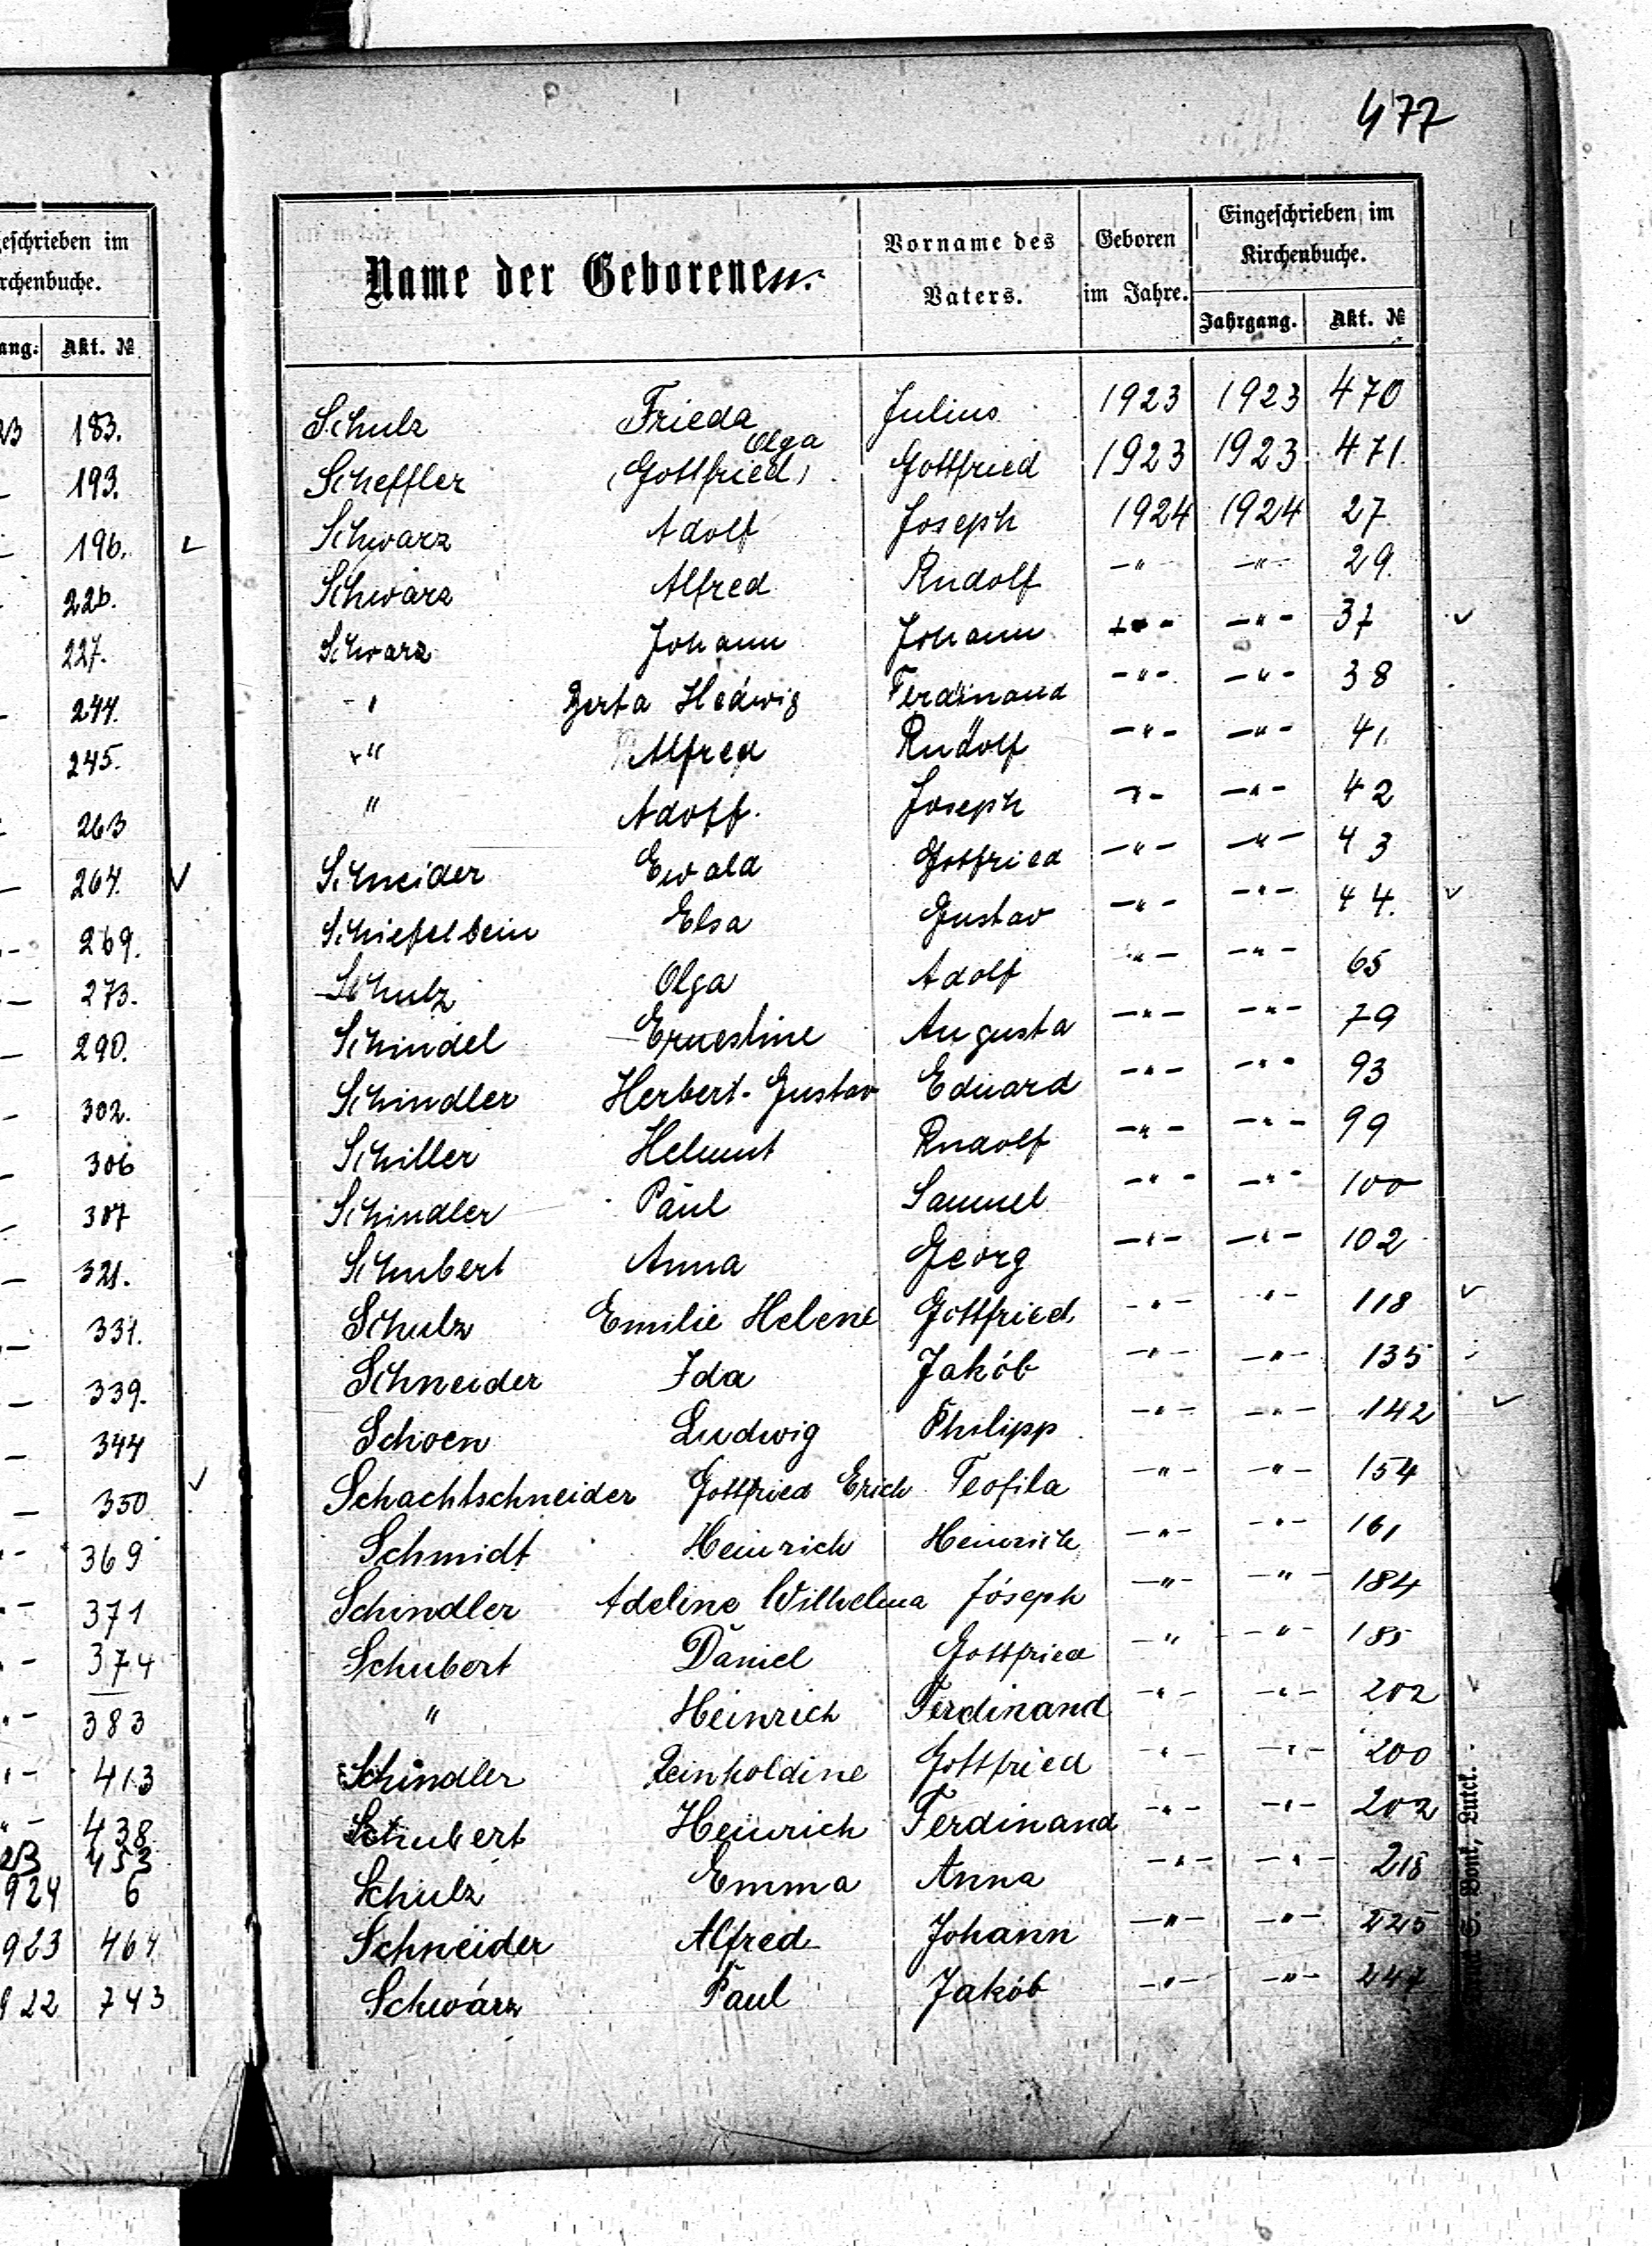 477
geschrieben im
rchenbuche.
ang. Akt. №
23 183.
193.
196.
226.
227.
244.
245.
263
264.
269.
273.
290.
302.
306
307
321.
331.
339.
344
350
369
371
374
383
413
438
23 453
924 6
923 464
922 743
Name der Geborenen. Vorname des Vaters. Geboren im Jahre. Eingeschrieben im Kirchenbuche.
Jahrgang. Akt. №
Schulz Frieda Julius 1923 1923 470
Olga
Scheffler (Gottfried) Gottfried 1923 1923 471.
Schwarz Adolf Joseph 1924 1924 27
Schwarz Alfred Rudolf -"- -"- 29.
Schwarz Johann Johann -"- -"- 37
-" Berta Hedwig Ferdinand -"- -"- 38
-" Alfred Rudolf -"- -"- 41.
" Adolf. Joseph -"- -"- 42
Schneider Ewald Gottfried -"- -"- 43
Schiefelbein Elsa Gustav -"- -"- 44.
Schulz Olga Adolf -"- -"- 65
Schindel Ernestine Augusta -"- -"- 79
Schindler Herbert-Gustav Eduard -"- -"- 93
Schiller Helmut Rudolf -"- -"- 99
Schindler Paul Samuel -"- -"- 100
Schubert Anna Georg -"- -"- 102
Schulz Emilie Helene Gottfried -"- -"- 118
Schneider Ida Jakób -"- -"- 135
Schoen Ludwig Philipp -"- -"- 142
Schachtschneider Gottfried Erich Teofila -"- -"- 154
Schmidt Heinrich Heinrich -"- -"- 161
Schindler Adeline Wilhelma Jóseph -"- -"- 184
Schubert Daniel Gottfried -" -"- 185
" Heinrich Ferdinand -"- -"- 202
Schindler Reinholdine Gottfried -"- -"- 200
Schubert Heinrich Ferdinand -"- -"- 202
Schulz Emma Anna -"- -"- 218
Schneider Alfred Johann -"- -"- 225
Schwárz Paul Jakób -"- -"- 247
S. Bont, Luck.